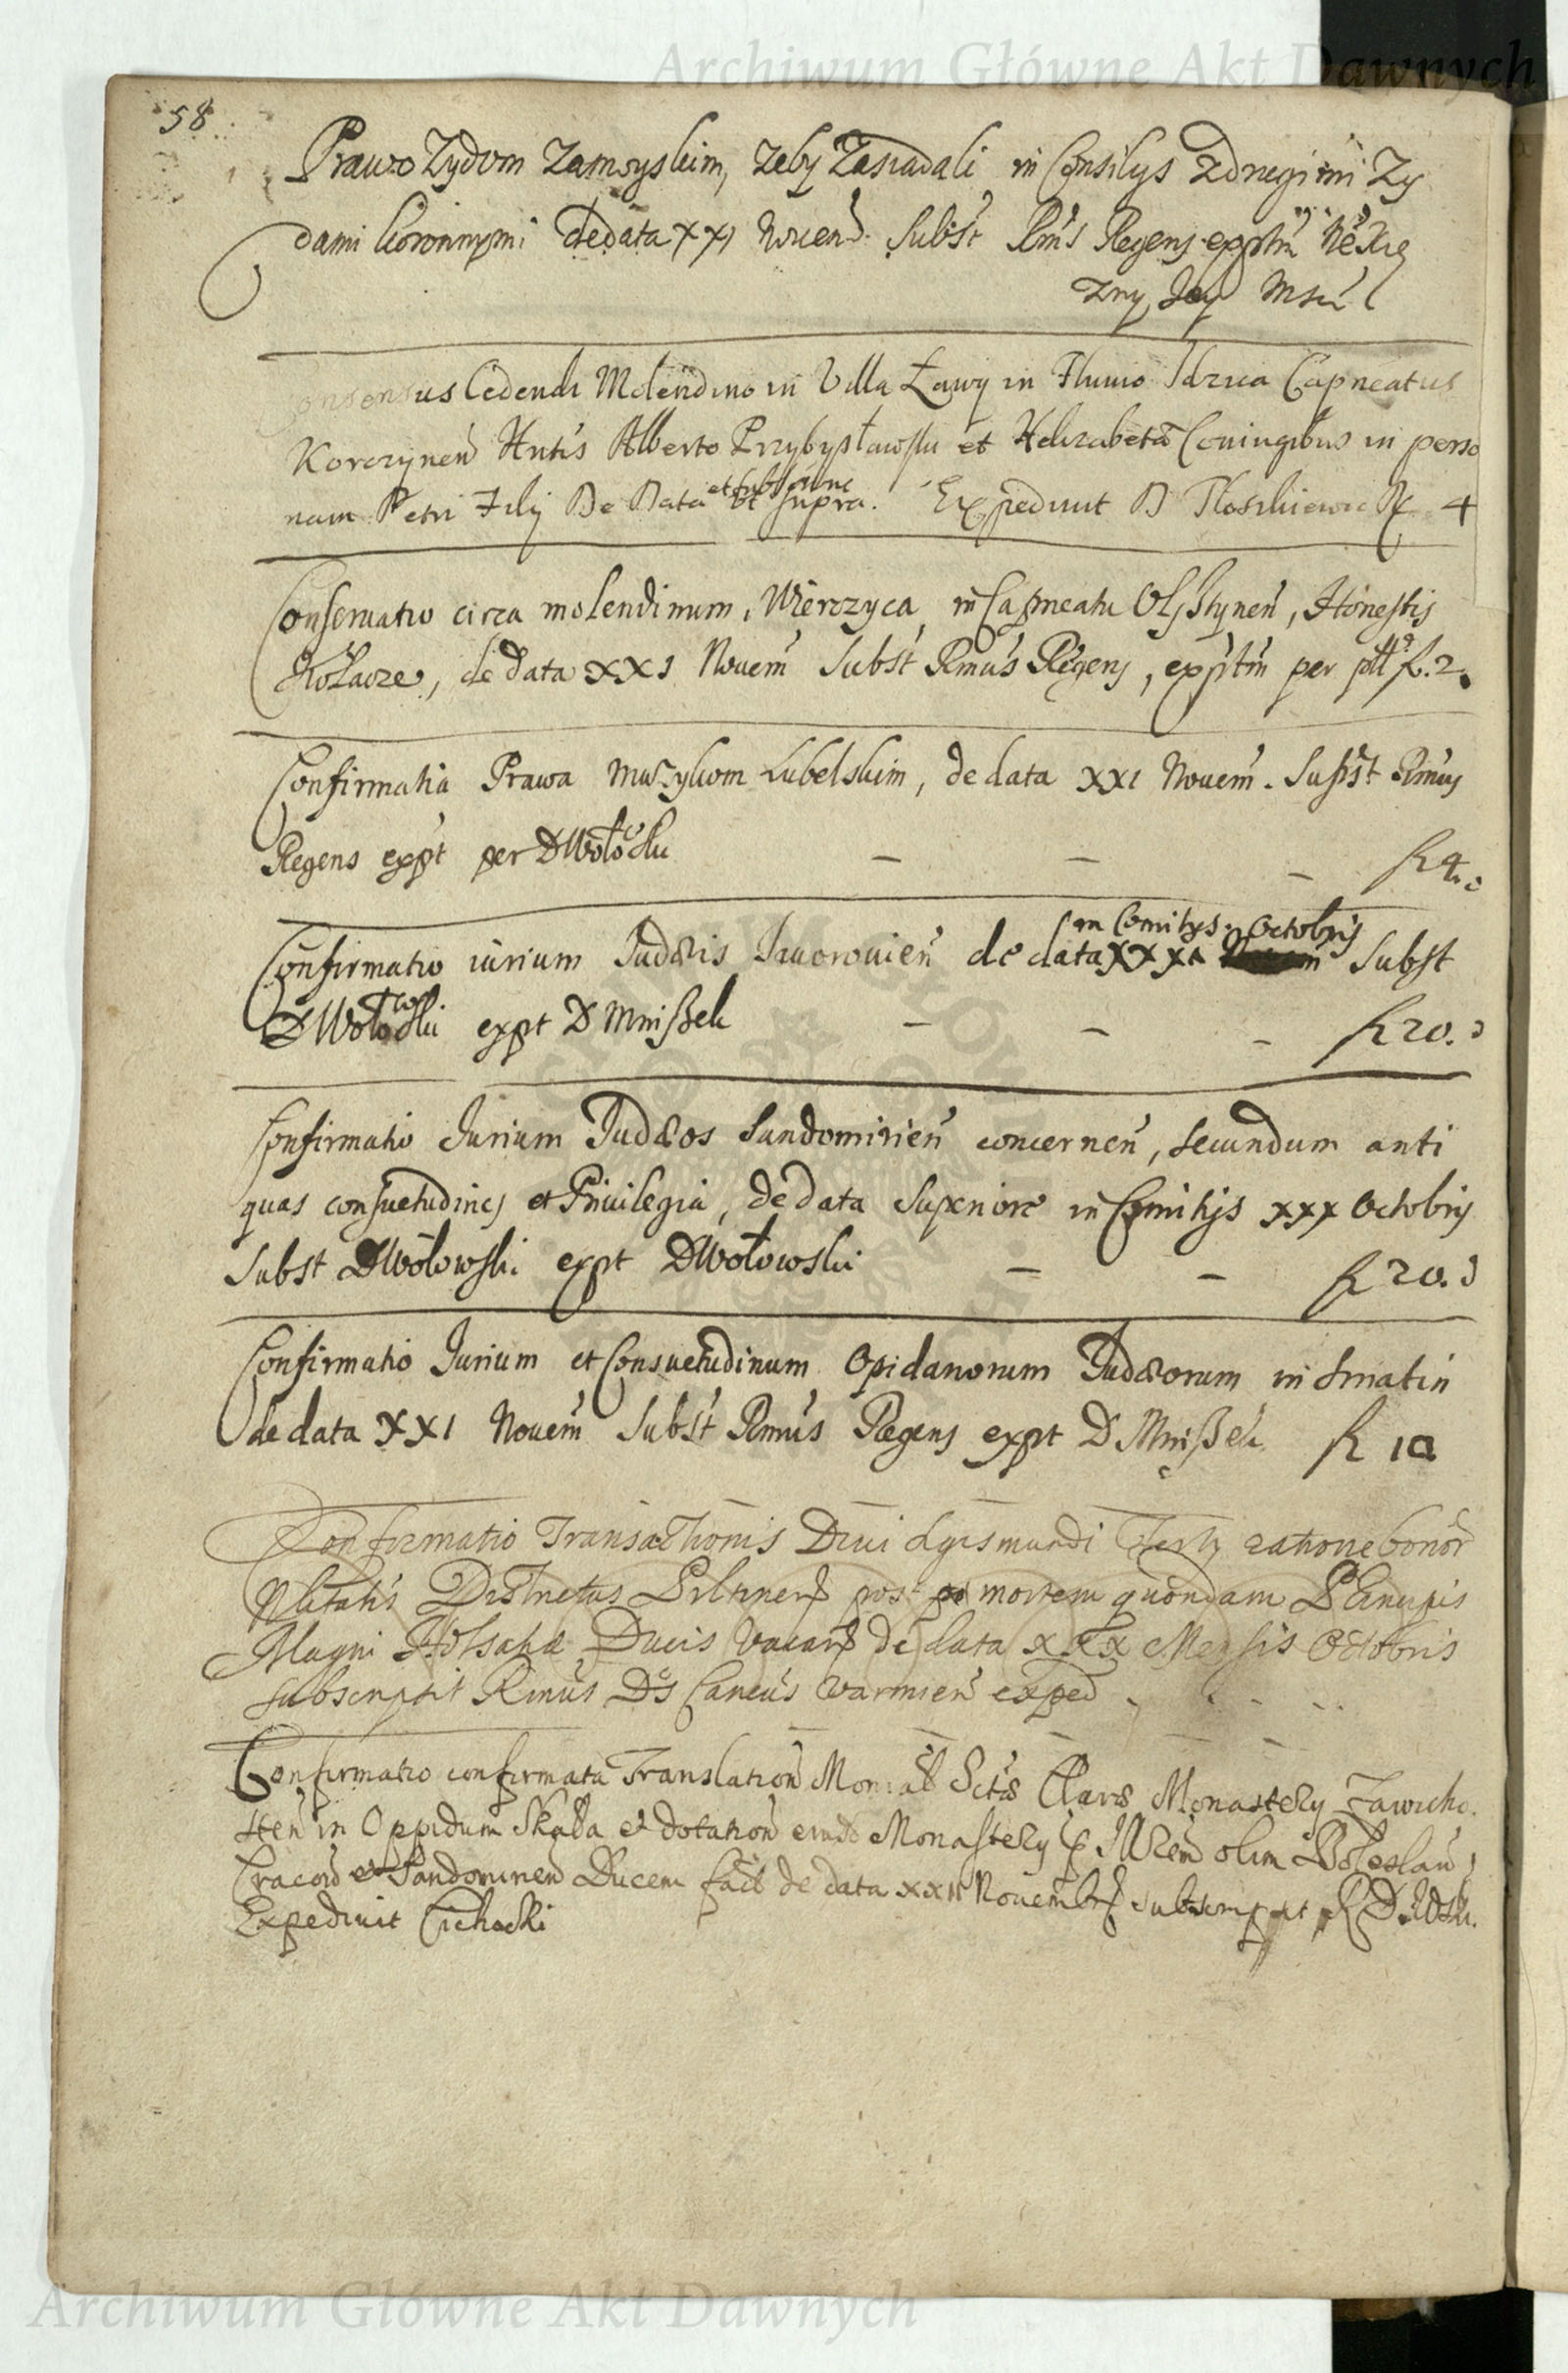 Archiwum Główne Akt Dawnych
58
Prawo Zydom Zamoyskim, zeby Zasiadali in Consilijs z drugiemi Zy
dami koronnymi de data XXI Novem. Subst Rmus Regens exptm
Consensus Cedendi Molendino in Villa Ławy in Fluvio Capneatus
Korczynen Hntis Alberto Przybysławski et Helizabeta Coniugibus in perso
nam Petri Filij De Data et subscripne ut supra. Expedivit D 4
Conservatio circa molendinum, Wierczyca, in Capneatu Olsztynen, Honestis
de data XXI Novem Subst Rmus Regens, exptm per fl. 2.
Confirmatia Prawa Muzykom Lubelskim, de data XXI Novem. Subst Rmus
Regens expt per D Wołowski — — — fl 4.
Confirmatio iurium Judæis Jaworovien de data XXX in Comitijs Octobris Subst
D Wołowski expt D Mniszek — — — fl 20.
Confirmatio Jurium Judæos Sandomirien concernen, secundum anti
quas consuetudines et Privilegia, de data Superiore in Comitijs XXX Octobris
Subst D Wołowski expt D Wołowski — — fl 20.
Confirmatio Jurium et Consuetudinum Opidanorum Judæorum in Sniatin
de data XXI Novem Subst Rmus Regens expt D Mniszek fl 10
Confirmatio Transactionis Divi Sigismundi Tertij ratione bonor
Nlitatis Districtus Piltinens post mortem quondam
Magni Holsatiæ Ducis vacans de data XXX Mensis Octobris
subscripsit Rmus Ds Cancus Varmien exped
Confirmatio confirmata Translation Monial Sctæ Claræ Monastery Zawicho
sten in Oppidum Skała et dotation eiusd Monastery p Illrem olim Boleslau
Cracov et Sandomiren Ducem fact de data XXII Novembr subscripsit R D
Expedivit Cichocki
Archiwum Główne Akt Dawnych